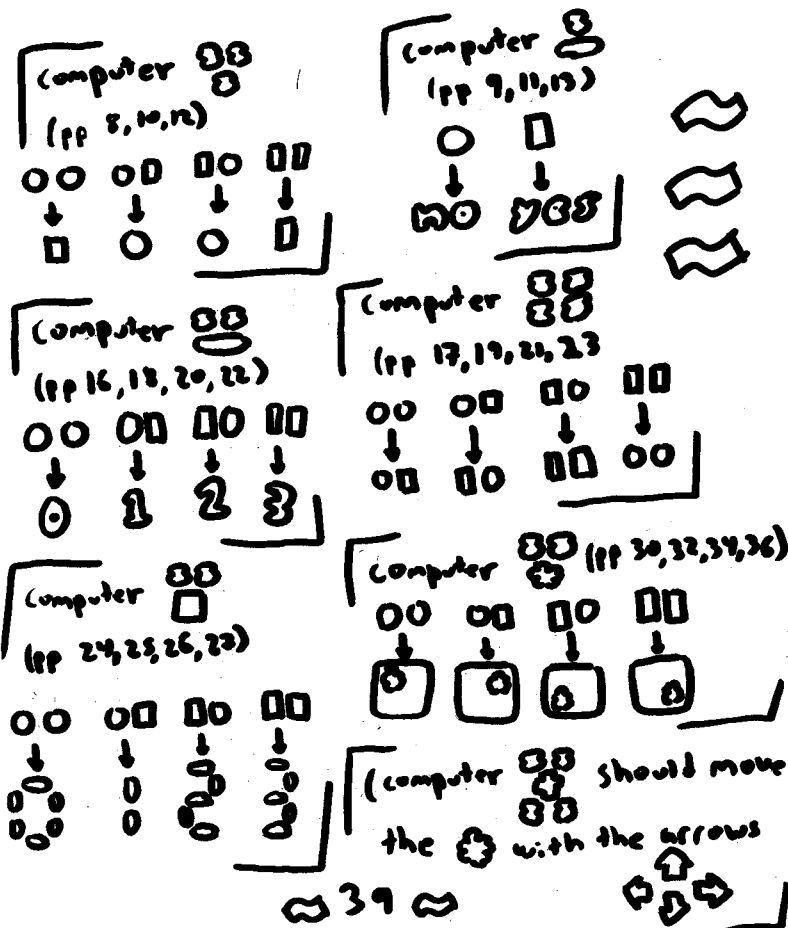 computer
(pp 8,10,12)
computer
(pp 9,11,13)
no yes
computer
(pp 16,18,20,22)
0 1 2 3
computer
(pp 17,19,21,23
computer
(pp 24,25,26,27)
computer (pp 30,32,34,36)
(computer should move
the with the arrows
39